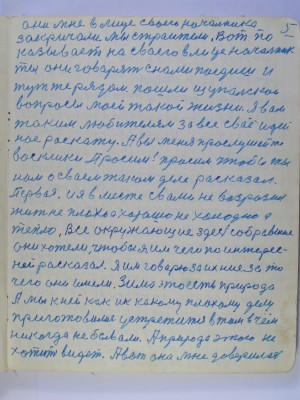 они мне в лице своего начальника 5
закричали мы строители. Вот по
казывает на своего в лице начальник
ты они говорят с нами поедиш и
тут же рядом пошли
вопросы моей такой жизни. Я вам
таким любителям за все своё идей
ное раскажу. А вы меня прослушайте
Просим! просим чтобы ты
нам о своем таком деле рассказал.
Первая. и я вместе с вами не возражаю
жить не плохо а хорошо не холодно а
тепло, Все окружающие здесь собравшие
они хотели, чтобы я им чего по интерес-
ней рассказал. Я им говорю за их ние за то
чего они имели. Земля это есть природа
А мы к ней как и к какому плохому делу
приготовились устретится в том в чем
никогда не бывали. А природа этого не
хотит видет. А вот она мне доверилась